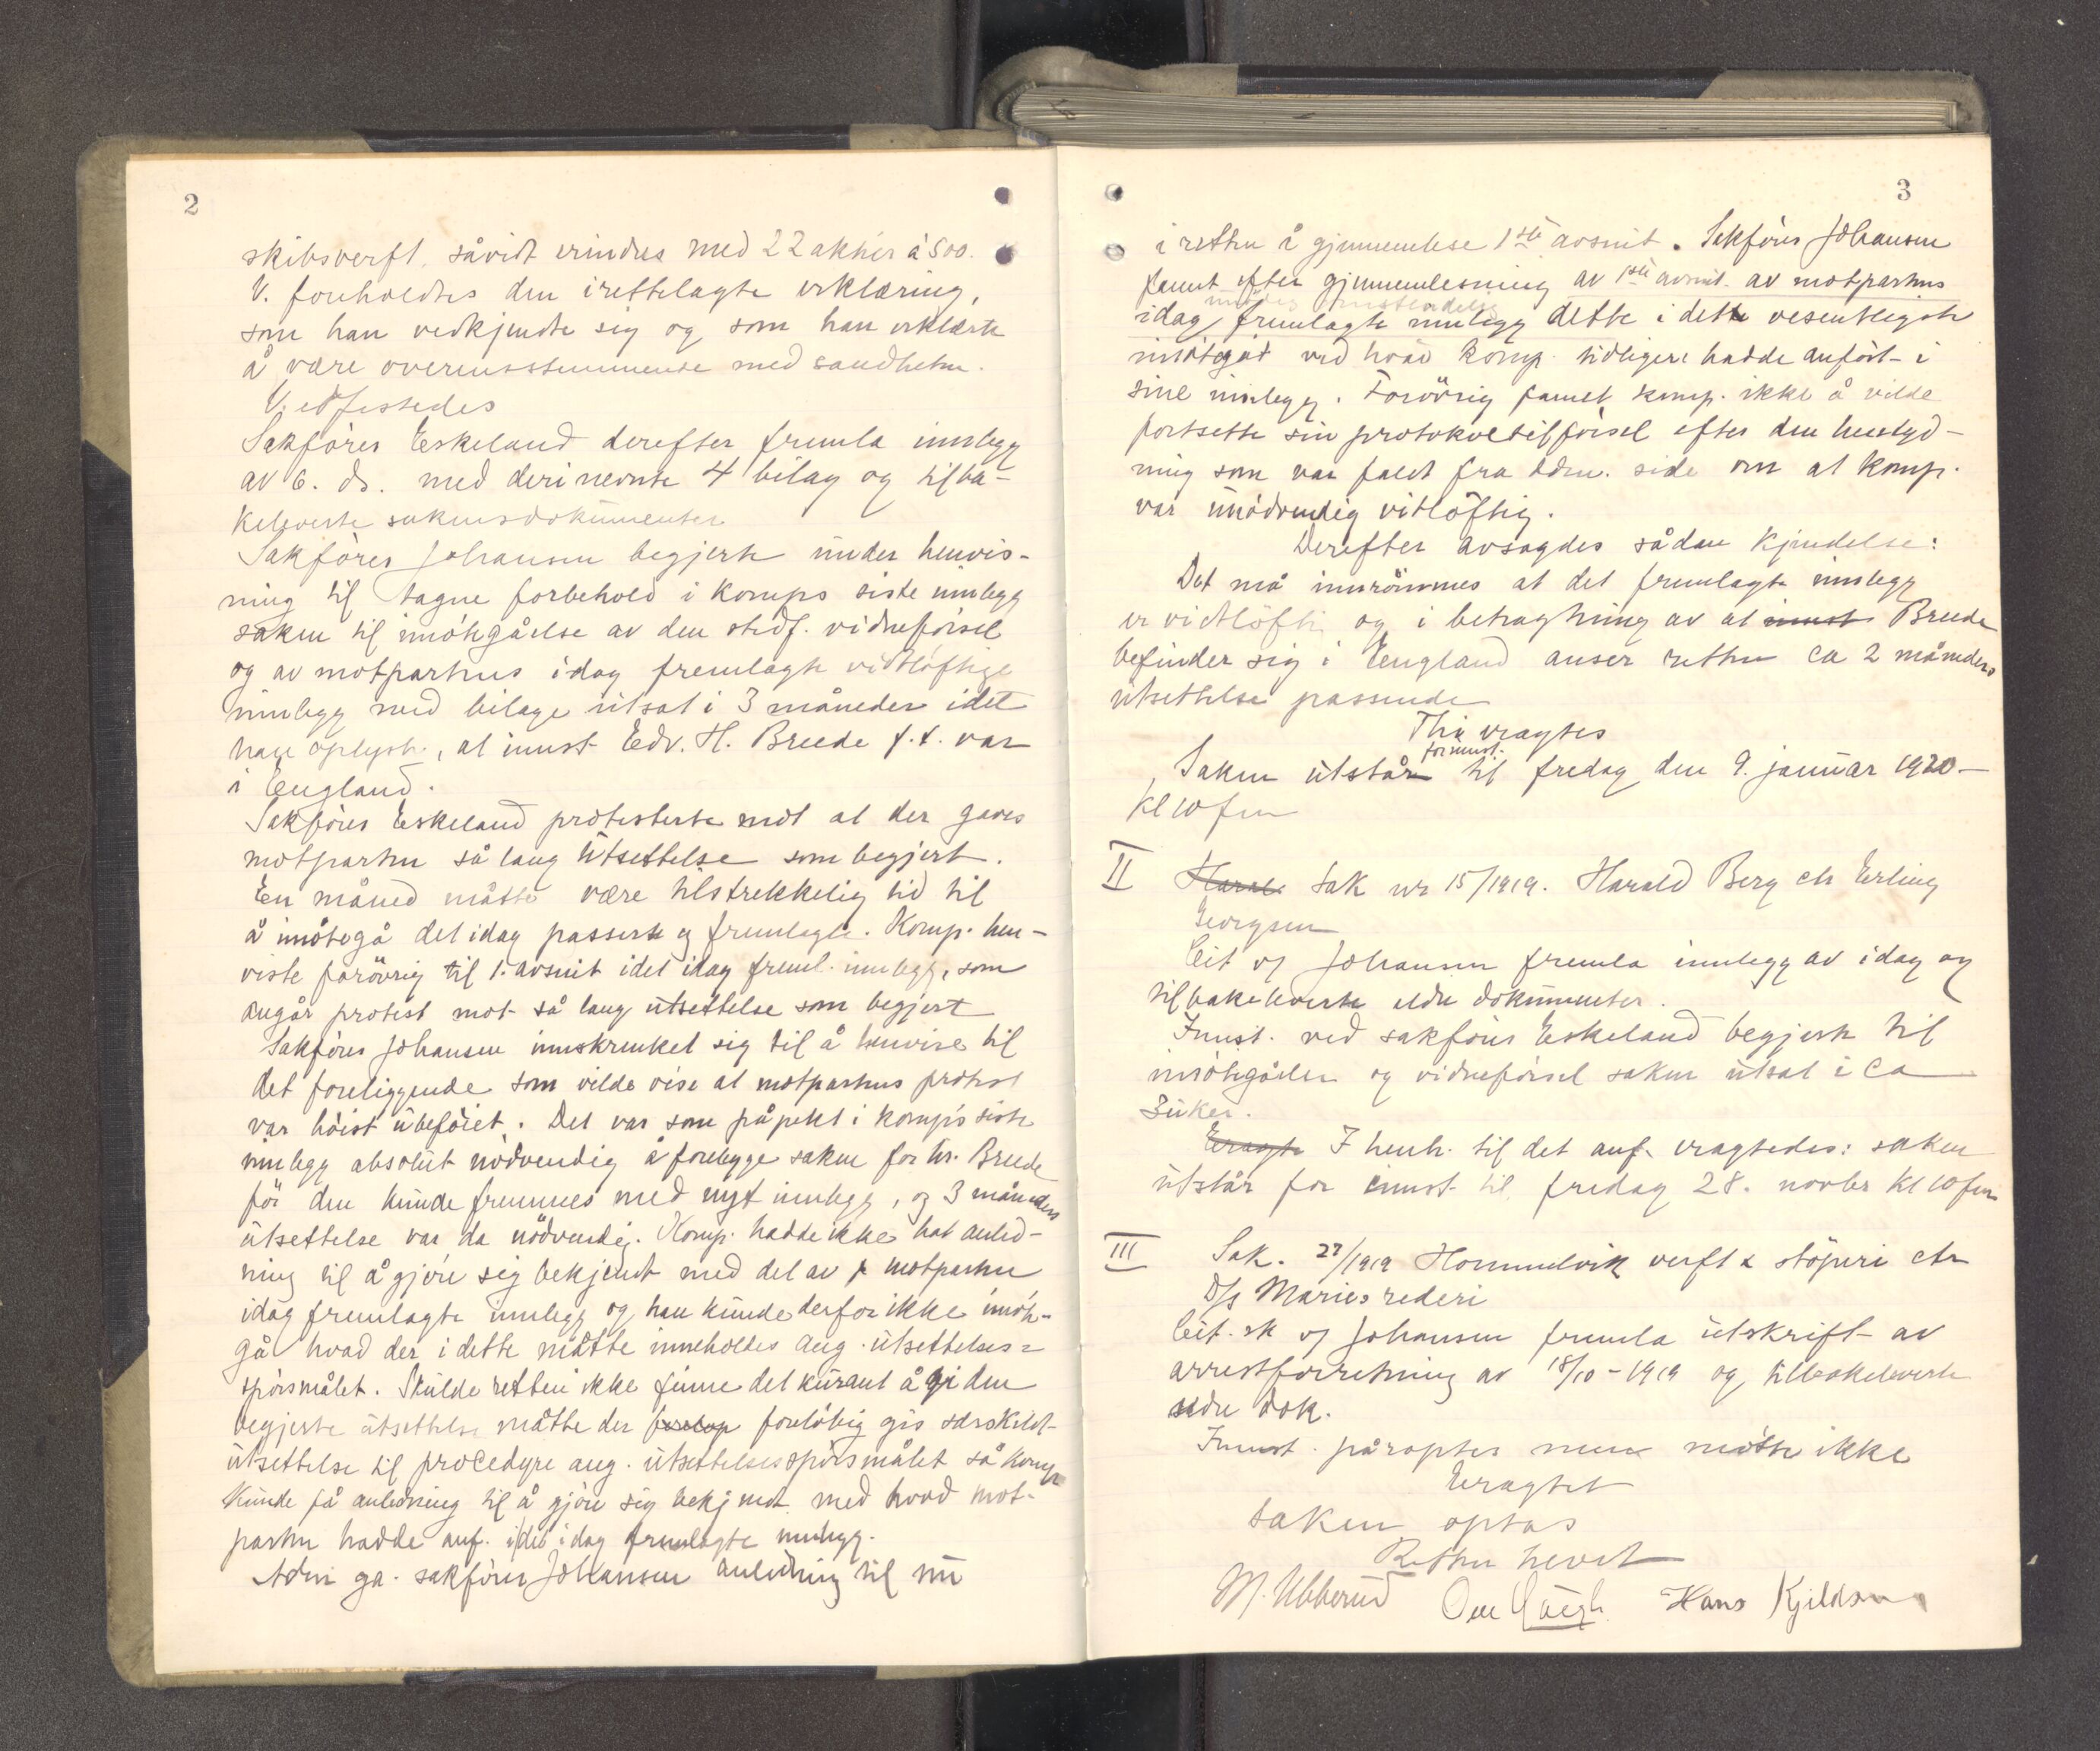 2
skibsverft, såvidt erindres med 22 aktier á 500.
V. foreholdtes den irettelagte erklæring,
som han vedkjendte sig og som han erklærte
å være overensstemmende med sandheten.
V. edfestedes
Sakförer Eskeland derefter fremla innlegg
av 6. ds. med deri nevnte 4 bilag og tilba-
keleverte sakens dokumenter
Sakförer Johansen begjerte under henvis-
ning til tagne forbehold i komps siste innlegg
saken til imötegåelse av den stedf. vidneförsel
og av motpartens idag fremlagte vidtlöftige
innlegg med bilage utsat i 3 måneder idet
han oplyste, at innst. Edv. H. Breede f.t. var
i England.
Sakförer Eskeland protesterte mot at der gaves
motparten så lang utsettelse som begjert.
En måned måtte være tilstrekkelig tid til
å imötegå det idag passerte og fremlagte. Komp. hen-
viste forövrig til 1. avsnit i det idag freml. innlegg, som
angår protest mot så lang utsettelse som begjert
Sakförer Johansen innskrenket sig til å henvise til
det foreliggende som vilde vise at motpartens protest
var höist ubeföiet. Det var som påpekt i komp's siste
innlegg absolut nödvendig å forelegge saken for hr. Breede
för den kunde fremmes med nyt innlegg, og 3 måneders
utsettelse var da nödvendig. Komp. hadde ikke hat anled-
ning til å gjöre sig bekjendt med det av motparten
idag fremlagte innlegg og han kunde derfor ikke imöte-
gå hvad der i dette måtte inneholdes ang. utsettelses=
spörsmålet. Skulde retten ikke finne det kurant å gi den
begjerte utsettelse måtte der forelöbig gis særskilt
utsettelse til procedyre ang. utsettelsesspörsmålet så komp
kunde få anledning til å gjöre sig bekjendt med hvad mot-
parten hadde anf. i det idag fremlagte innlegg.
Adm ga. sakförer Johansen anledning til nu
3
i retten å gjennemlese 1ste avsnit. Sakförer Johansen
fannt efter gjennemlesning av 1ste avsnit av motpartens
idag fremlagte innlegg dette i det vesentligste
imötegåt ved hvad komp. tidligere hadde anfört i
sine innlegg. Forövrig fannt komp. ikke å vilde
fortsette sin protokoltilförsel efter den hentyd-
ning som var faldt fra adm. side om at komp.
var unödvendig vitlöftig.
Derefter avsagdes sådan kjendelse:
Det må innrömmes at det fremlagte innlegg
er vidtlöftig og i betragtning av at innst. Breede
befinder sig i England anser retten ca 2 måneders
utsettelse passende
Thi eragtes
for innst.
Saken utstår til fredag den 9. januar 1920-
kl 10 fm
II Harald Sak nr 15/1919. Harald Berg ctr Erling
Georgsen
Cit v/ Johansen fremla innlegg av idag og
tilbakeleverte eldre dokumenter.
Innst. ved sakförer Eskeland begjerte til
imötegåelse og vidneförsel saken utsat i ca
3 uker.
Eragte I henh. til det anf. eragtedes: saken
utstår for innst. til fredag 28. novbr kl 10 fm
III Sak. 27/1919 Hommelvik verft & stöperi ctr
D/s Maries rederi
Cit. sk v/ Johansen fremla utskrift av
arrestforretning av 18/10-1919 og tilbakeleverte
eldre dok.
Innst. påroptes men mötte ikke
Eragtet
saken optas
Retten hevet
M. Ubberud Hans Kjeldsen